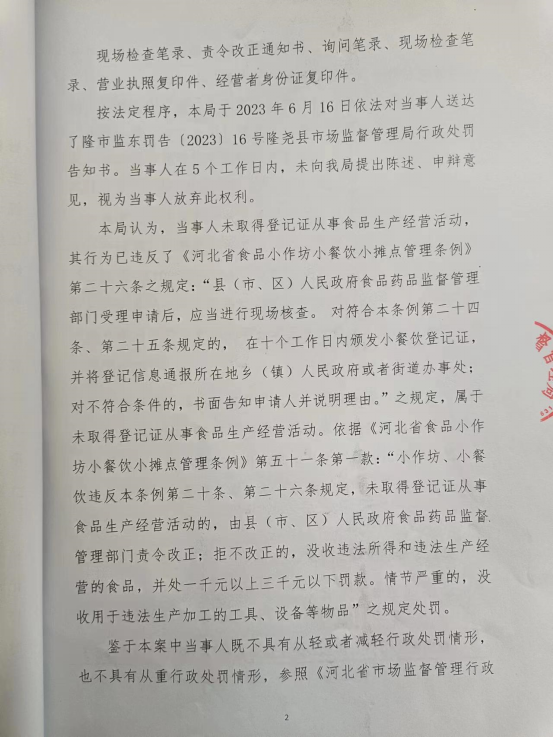 现场检查笔录、责令改正通知书、询问笔录、现场检查笔
录、营业执照复印件、经营者身份证复印件。
按法定程序，本局于 2023 年 6 月 16 日依法对当事人送达
了隆市监东罚告〔2023〕16 号隆尧县市场监督管理局行政处罚
告知书。当事人在 5 个工作日内，未向我局提出陈述、申辩意
见，视为当事人放弃此权利。
本局认为，当事人未取得登记证从事食品生产经营活动，
其行为已违反了《河北省食品小作坊小餐饮小摊点管理条例》
第二十六条之规定：“县（市、区）人民政府食品药品监督管理
部门受理申请后，应当进行现场核查。 对符合本条例第二十四
条、第二十五条规定的， 在十个工作日内颁发小餐饮登记证，
并将登记信息通报所在地乡（镇）人民政府或者街道办事处；
对不符合条件的，书面告知申请人并说明理由。”之规定，属于
未取得登记证从事食品生产经营活动。依据《河北省食品小作
坊小餐饮小摊点管理条例》第五十一条第一款：“小作坊、小餐
饮违反本条例第二十条、第二十六条规定，未取得登记证从事
食品生产经营活动的，由县（市、区）人民政府食品药品监督
管理部门责令改正；拒不改正的，没收违法所得和违法生产经
营的食品，并处一千元以上三千元以下罚款。情节严重的，没
收用于违法生产加工的工具、设备等物品”之规定处罚。
鉴于本案中当事人既不具有从轻或者减轻行政处罚情形，
也不具有从重行政处罚情形，参照《河北省市场监督管理行政
2